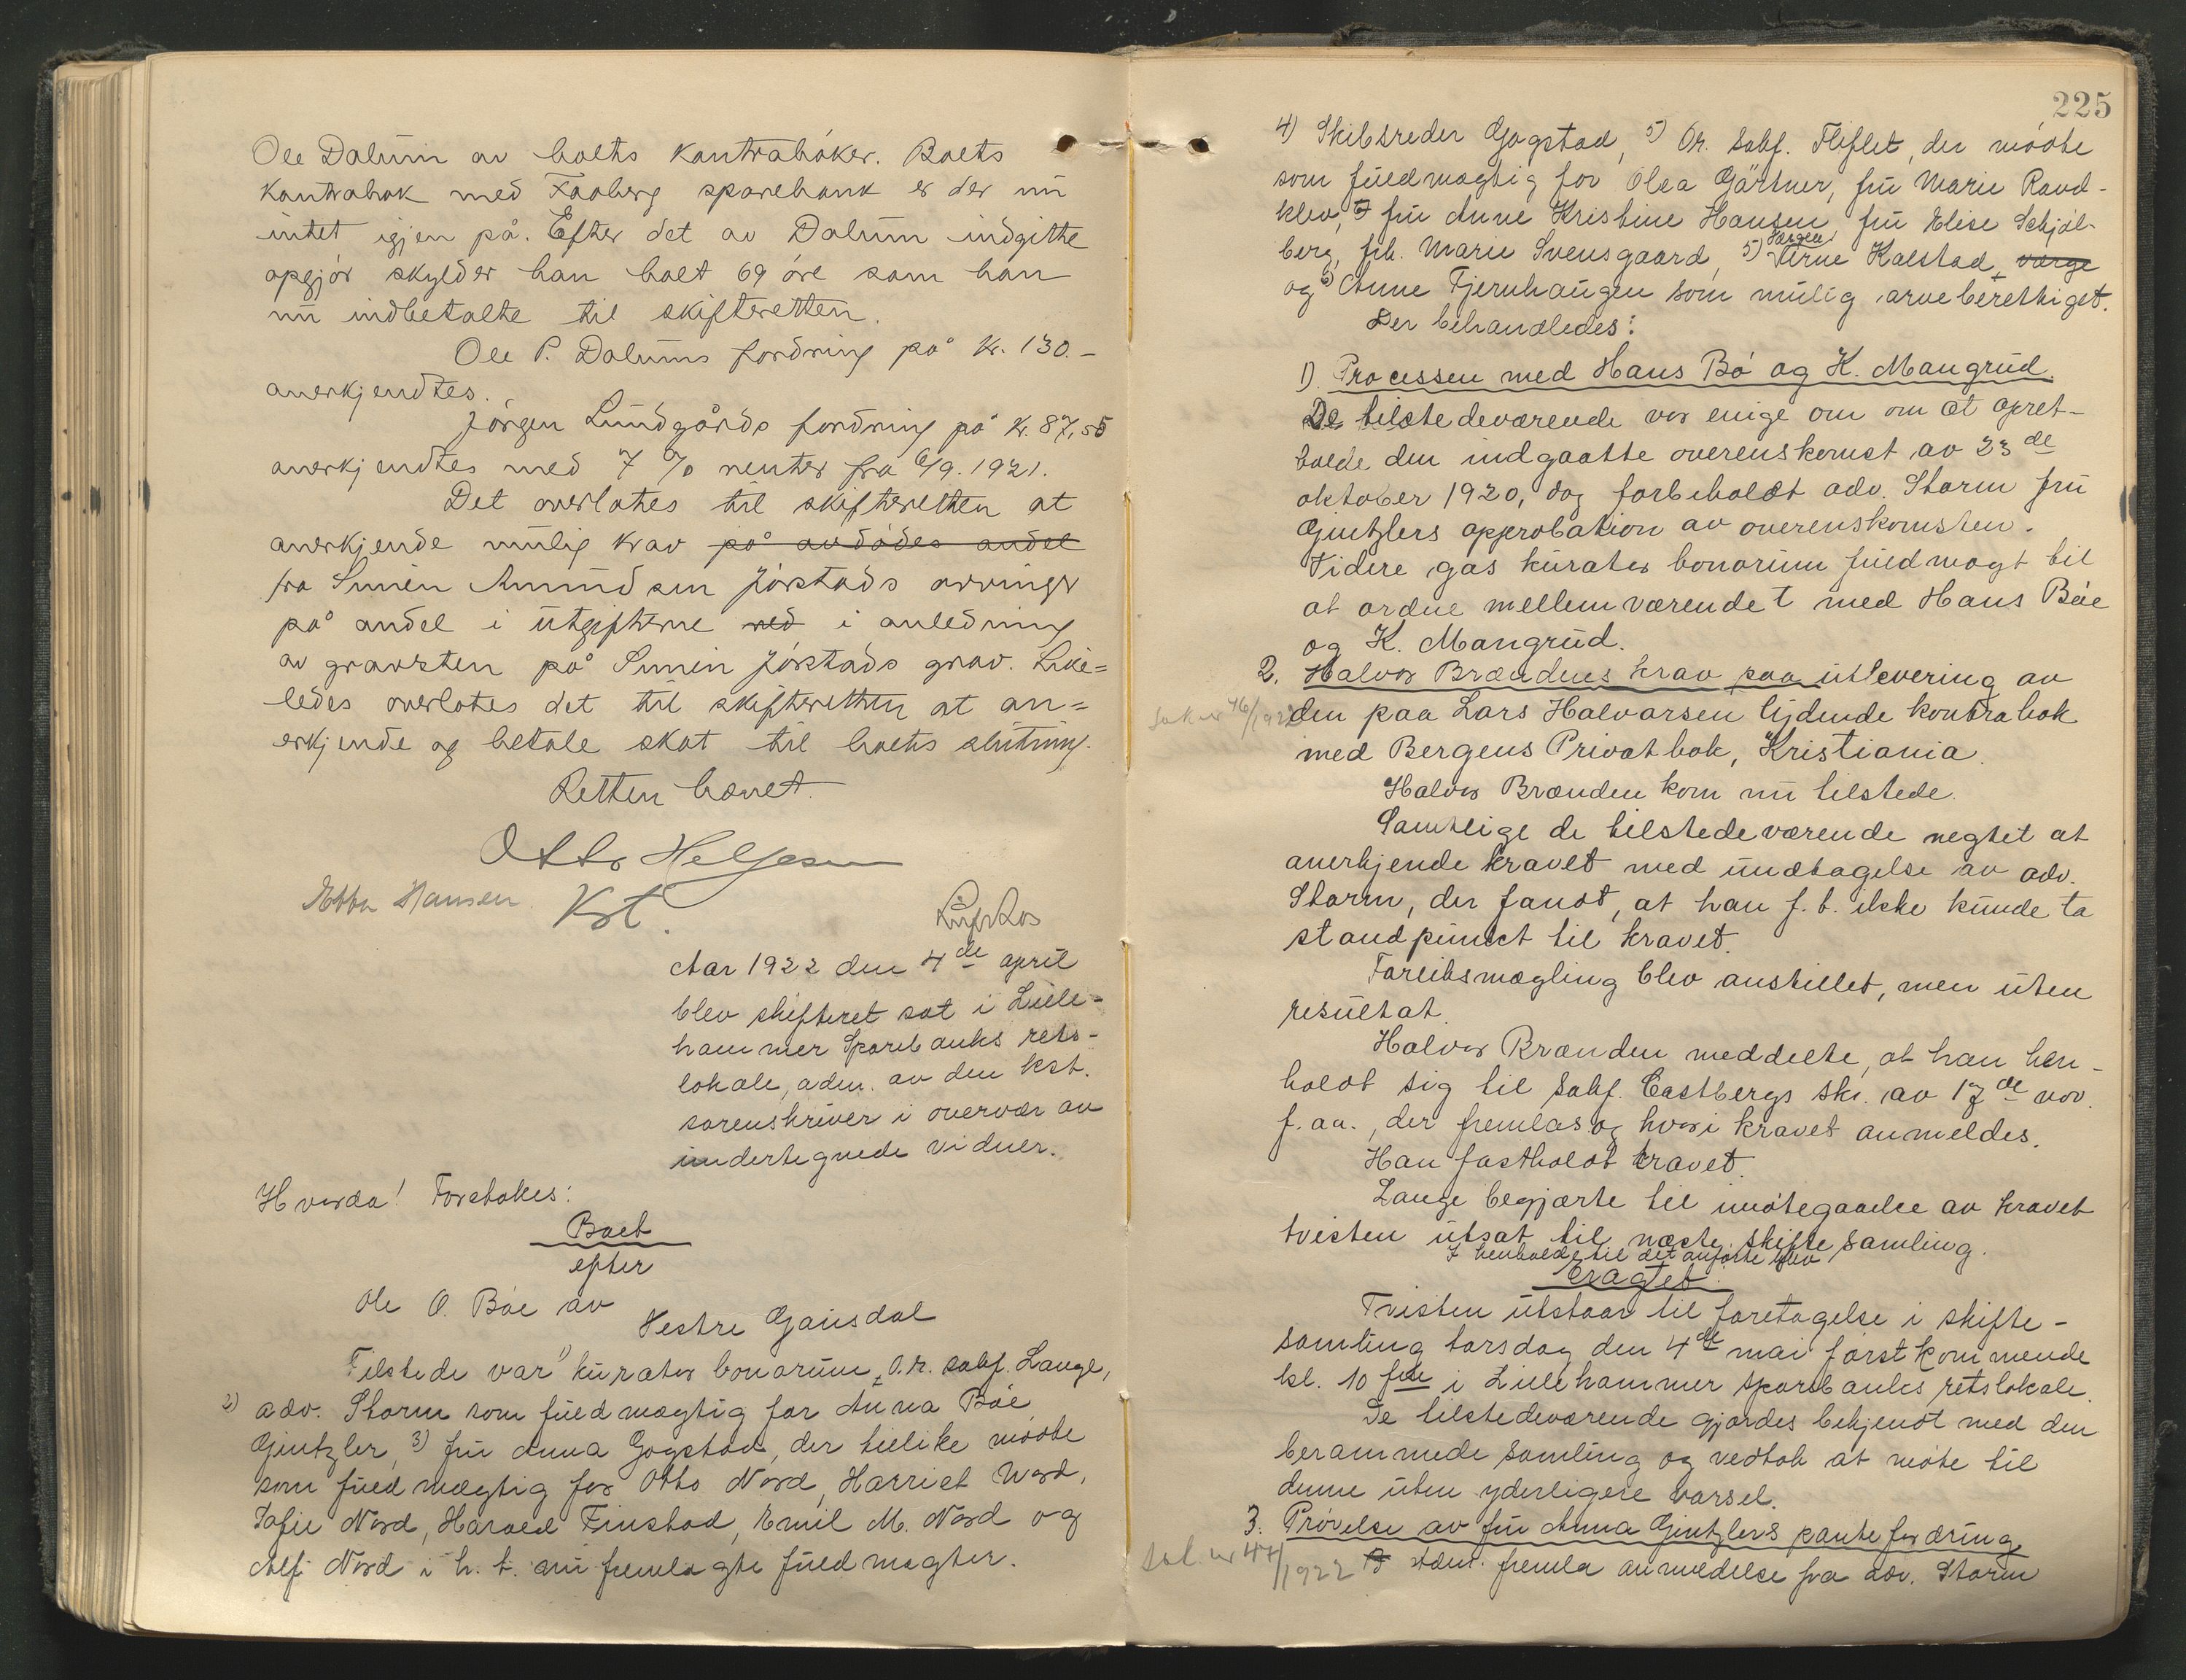 Ole Dalum av boets kontrabøker. Boets
kontrabok med Faaberg sparebank er der nu
intet igjen på. Efter det av Dalum indgitte
opgjør skylder han boet 69 øre som han
nu indbetalte til skifteretten.
Ole P. Dalums fordring på kr. 130.-
anerkjendtes.
Jørgen Lundgårds fordring på kr. 87,55
anerkjendtes med 7 % renter fra 6/9. 1921.
Det overlotes til skifteretten at
anerkjende mulig krav på avdødes andel
fra Simen Amundsen Jørstads arvinger
på andel i utgifterne ved i anledning
av gravsten på Simen Jørstads grav. Like=
ledes overlotes det til skifteretten at an=
erkjende og betale skat til boets slutning.
Retten hævet.
Otto Helgesen
Ebba Hansen. Kst.
Aar 1922 den 4de april
blev skifteret sat i Lille-
hammer Sparebanks rets-
lokale, adm. av den kst.
sorenskriver i overvær av
undertegnede vidner.
Hvorda! Foretokes:
Boet
efter
Ole O. Bøe av
Vestre Gausdal
Tilstede var 1) kurator bonorum, O.r. sakf. Lange,
2) adv. Storm som fuldmægtig for Anna Bøe
Gintzler, 3) fru Anna Gogstad, der tillike møtte
som fuldmægtig for Otto Nord, Harriet Nord,
Sofie Nord, Harald Finstad, Emil M. Nord og
Alf Nord i h. t. nu fremlagte fuldmagter.
225
4) Skibsreder Gogstad, 5) Or. sakf. Fliflet, der møtte
som fuldmægtig for Olea Gärtner, fru Marie Rand-
klev, fru Anne Kristine Hansen, fru Elise Schjøl-
berg, frk. Marie Svensgaard, 5) Værgen Arne Kalstad, værge
og 6) Anne Fjernhaugen som mulig arveberettiget.
Der behandledes:
1) Processen med Hans Bø og K. Mangrud.
De tilstedeværende var enige om om at opret-
holde den indgaatte overenskomst av 23de
oktober 1920, dog forbeholdt adv. Storm fru
Gintzlers approbation av overenskomsten.
Videre gas kurator bonorum fuldmagt til
at ordne mellemværendet med Hans Bøe
og K. Mangrud.
2. Halvor Brændens krav paa utlevering av
Sak nr 46/1922
den paa Lars Halvorsen lydende kontrabok
med Bergens Privatbok, Kristiania.
Halvor Brænden kom nu tilstede.
Samtlige de tilstedeværende negtet at
anerkjende kravet med undtagelse av adv.
Storm, der fandt, at han f. t. ikke kunde ta
standpunkt til kravet.
Forliksmægling blev anstillet, men uten
resultat.
Halvor Brænden meddelte, at han hen-
holdt sig til sakf. Castbergs skr. av 17de nov.
f. aa., der fremlas og hvori kravet anmeldes.
Han fastholdt kravet.
Lange begjærte til imøtegaaelse av kravet
tvisten utsat til næste skiftesamling.
I henhold til det anførte blev
Eragtet:
Tvisten utstaar til foretagelse i skifte-
samling torsdag den 4de mai førstkommende
kl. 10 fm i Lillehammer Sparebanks retslokale.
De tilstedeværende gjordes bekjendt med den
berammede samling og vedtok at møte til
denne uten yderligere varsel.
3. Prøvelse av fru Anna Gintzlers pantefordring
Sak nr 44/1922
Adm. fremla anmeldelse fra adv. Storm